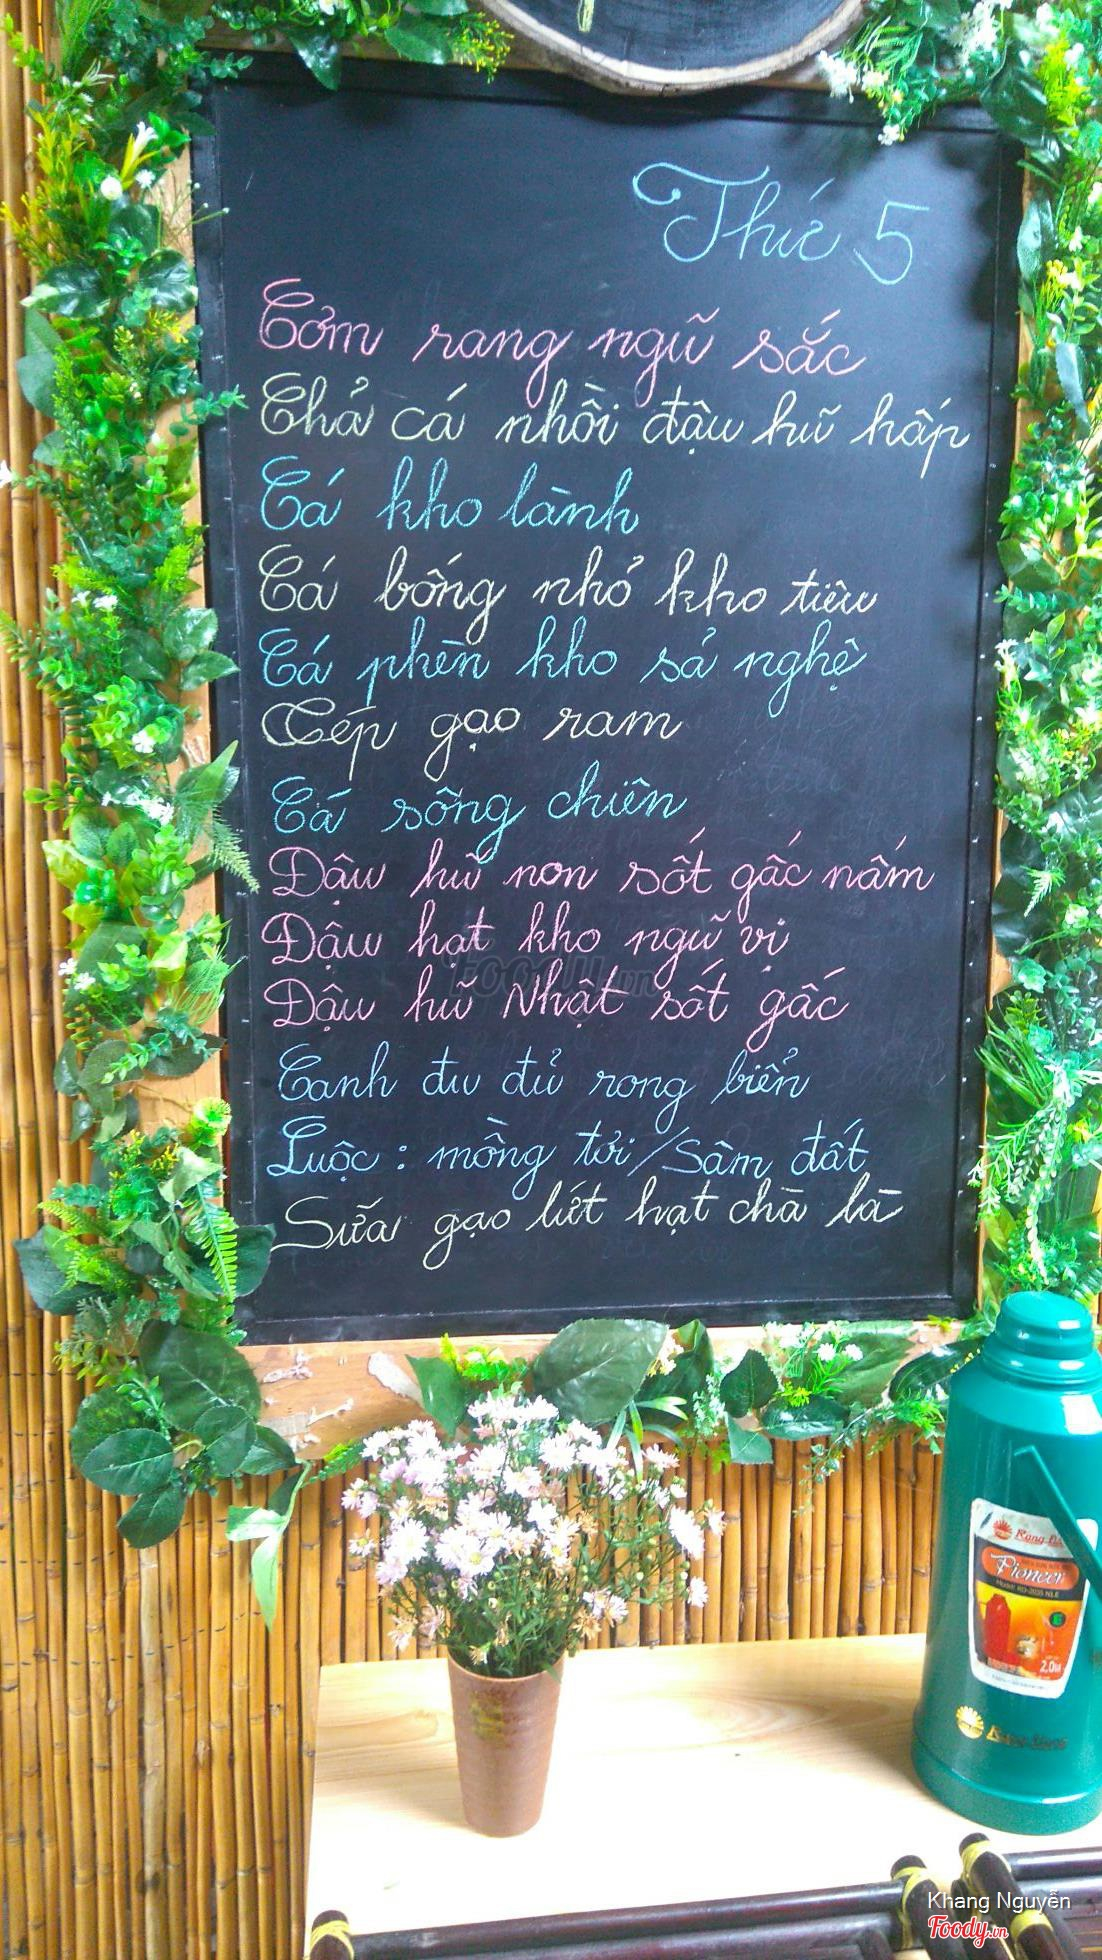 Thứ 5
Cơm rang ngũ sắc
Chả cá nhồi đậu hũ hấp
Cá kho lành
Cá bống nhỏ kho tiêu
Cá phèn kho sả nghệ
Tép gạo ram
Cá sông chiên
Đậu hũ non sốt gấc nấm
Đậu hạt kho ngũ vị
Foody.vn
Đậu hũ Nhật sốt gấc
Canh đu đủ rong biển
Luộc : mồng tơi/Sâm đất
Sữa gạo lứt hạt chà là
Pioneer
Model: RD-2035 N1.E
2.0L
Khang Nguyễn
Foody.vn